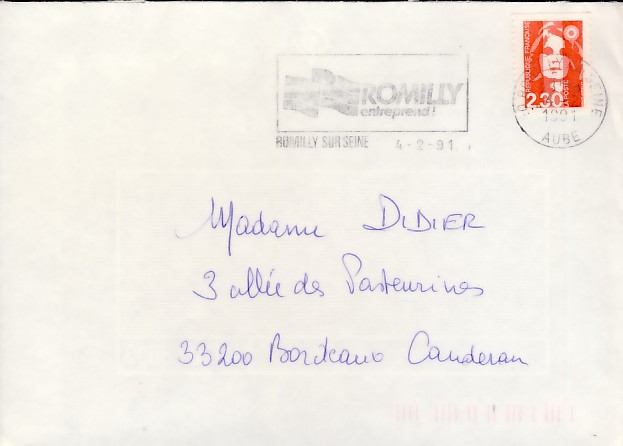 RÉPUBLIQUE FRANÇAISE
2.30
LA POSTE
ROMILLY
entreprend!
ROMILLY SUR SEINE 4-2-91
SEINE
1991
AUBE
Madame DIDIER
3 allée des Pasteurines
33200 Bordeaux Cauderan